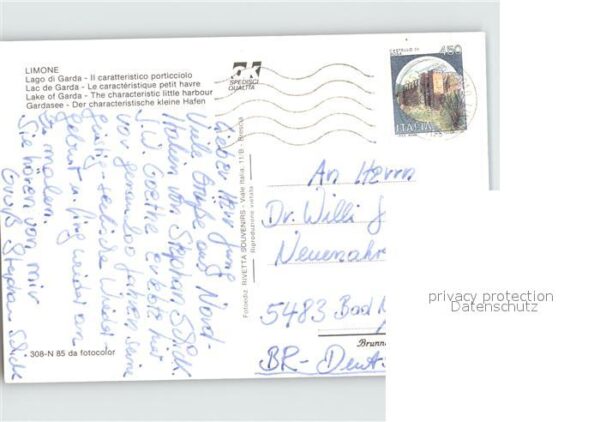 LIMONE
Lago di Garda - Il caratteristico porticciolo
Lac de Garda - Le caractéristique petit havre
Lake of Garda - The characteristic little harbour
Gardasee - Der characteristische kleine Hafen
SPEDISCI
QUALITÀ
CASTELLO DI
450
ITALIA
Lieber Herr Jung
Viele Grüße aus Nord-
italien von Stephan Slick
J.W. Goethe erlebte hier
vor genau 200 Jahren seine
geistig-seelische Wieder-
geburt u. fing wieder an
zu malen.
Sie hören von mir
Gruß Stephan Slick
Fotoediz. RIVETTA SOUVENIRS - Viale Italia, 11/B - Brescia
Riproduzione vietata
An Herrn
Dr. Willi J
Neuenahr
5483 Bad N
Brunn
BR-Deut
308-N 85 da fotocolor
privacy protection
Datenschutz